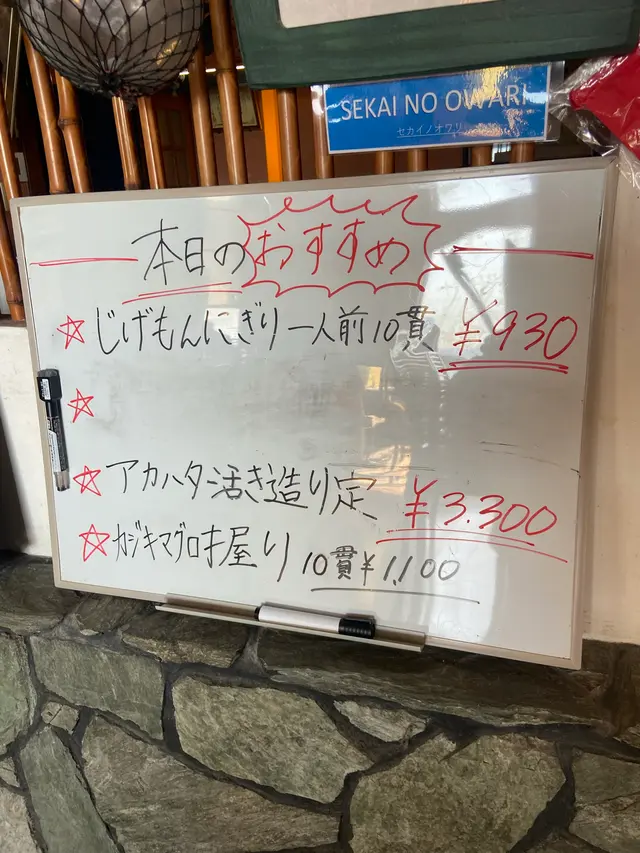 SEKAI NO OWARI
セカイノオワリ
本日のおすすめ
☆ じげもんにぎり一人前10貫 ¥930
☆
☆ アカハタ活き造り定 ¥3.300
☆ カジキマグロ 屋り 10貫¥1,100